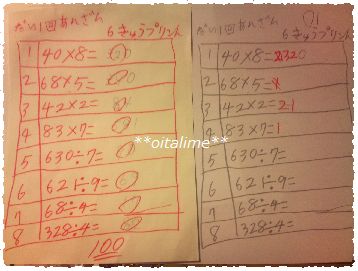 だい1回あんざん
6きゅうプリント
1 40×8=
2 68×5=
3 42×2=
4 83×7=
5 630÷7=
6 621÷9=
7 68÷4=
8 328÷4=
100
だい1回あんざん
6きゅうプリント
1 40×8=320
2 68×5=
3 42×2=21
4 83×7=1
5 630÷7=
6 621÷9=
7 68÷4=
8 328÷4=
**oitalime**